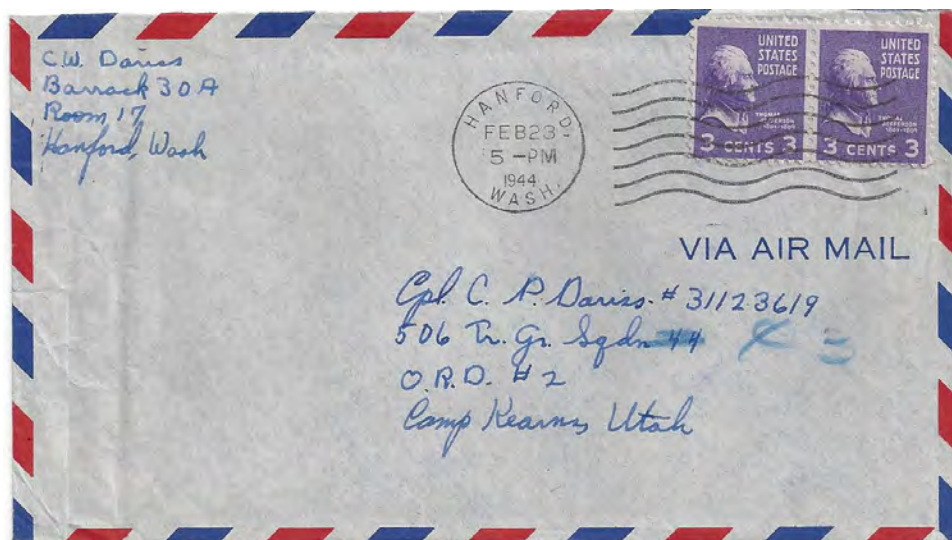 C.W. Dariss
Barrack 30A
Room 17
Hanford, Wash
HANFORD
FEB 23
5 -PM
1944
WASH.
UNITED
STATES
POSTAGE
THOMAS
JEFFERSON
1801-1809
3 CENTS 3
UNITED
STATES
POSTAGE
THOMAS
JEFFERSON
1801-1809
3 CENTS 3
VIA AIR MAIL
Cpl. C. P. Dariss. # 31123619
506 Tr. Gr. Sqdn 44
O.R.D. #2
Camp Kearns, Utah